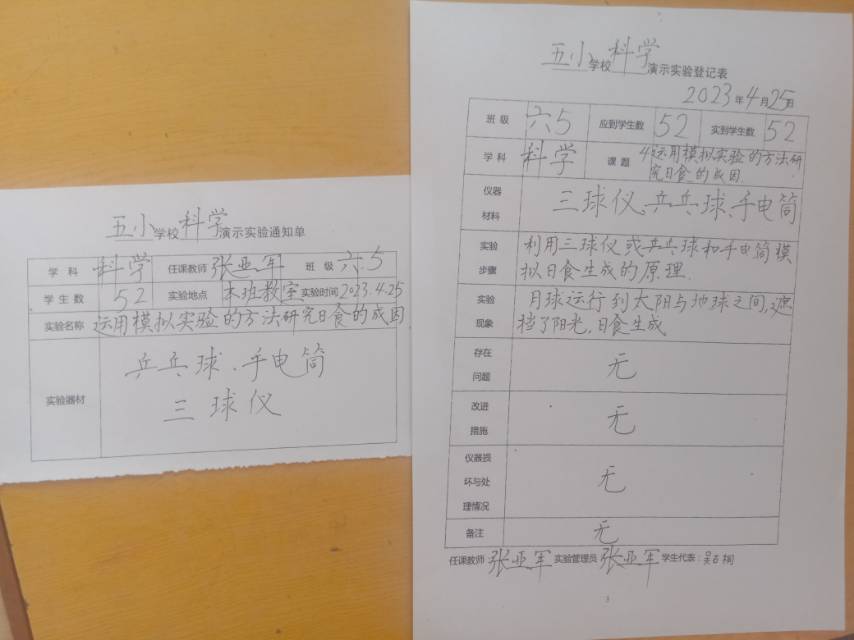 五小学校科学演示实验通知单
学科 科学 任课教师 张亚军 班级 六.5
学生数 52 实验地点 本班教室 实验时间 2023.4.25
实验名称 运用模拟实验的方法研究日食的成因
实验器材 乒乓球、手电筒
三球仪
五小学校科学演示实验登记表
2023年4月25日
班级 六5 应到学生数 52 实到学生数 52
学科 科学 课题 4运用模拟实验的方法研
究日食的成因.
仪器
材料
三球仪、乒乓球、手电筒
实验
步骤
利用三球仪或乒乓球和手电筒模
拟日食生成的原理.
实验
现象
月球运行到太阳与地球之间,遮
挡了阳光,日食生成
存在
问题
无
改进
措施
无
仪器损
坏与处
理情况
无
备注 无
任课教师 张亚军 实验管理员 张亚军 学生代表:
3